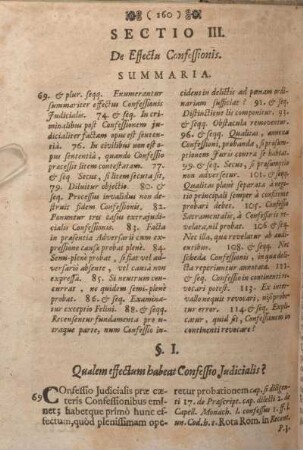 ( 160 )
SECTIO III.
De Effectu Confessionis.
SUMMARIA.
69. & plur. seqq. Enumerantur
summariter effectus Confessionis
Judicialis. 74. & seq. In cri-
minalibus post Confessionem ju-
dicialiter factam opus est senten-
tiâ. 76. In civilibus non est o-
pus sententiâ, quando Confessio
processit litem contestatam. &
seq. Secus, si litem secuta sit.
79. Delnitur objectio. 80. &
seq. Processus invalidus non de-
struit fidem Confessioni. 82.
Ponuntur tres casus extrajudi-
cialis Confessionis. 83. Facta
in præsentia Adversarii cum ex-
pressione causæ probat plenè. 84.
Semi-plenè probat, si fiat vel ad-
versariô absente, vel causa non
expressâ. 85. Si neutrum con-
currat, ne quidem semi-plenè
probat. 86. & seq. Examina-
tur exceptio Felini. 88. & seqq.
Recensentur fundamenta pro u-
traque parte, num Confessio in-
cidens in delictis ad pœnam ordi-
nariam sufficiat? 92. & seq.
Distinctione lis componitur. 93.
& seqq. Obstacula removentur.
96. & seqq. Qualitas, annexa
Confessioni, probanda, si præ-
sumptionem Juris contra se habeat.
99. & seq. Secus, si præsumptio
non adversetur. 101. & seqq.
Qualitas planè separata à nego-
tio principali semper à confitente
probari debet. 105. Confessio
Sacramentalis, à Confessario re-
velata, nil probat. 106. & seq.
Nec illa, quæ revelatur ab audi-
entibus. 108. & seqq. Nec
scheda Confessionis, in qua de-
licta reperiuntur annotata. 110.
& seq. Confessio in continenti re-
vocari potest. 113. Ex inter-
vallo nequit revocari, nisi proba-
to errore. 114. & seq. Expli-
catur, quid sit, Confessionem in
continenti revocare?
§. I.
Qualem effectum habeat Confessio Judicialis?
69 COnfessio Judicialis præ cæ-
teris Confessionibus emi-
net; habetque primò hunc ef-
fectum, quòd plenissimam ope-
retur probationem cap. si diligen-
ti 17. de Præscript. cap. dilecti 2. de
Capell. Monach. l. 1. ff.
un. Cod. h. t. Rota Rom. in Recent.
P. 4.